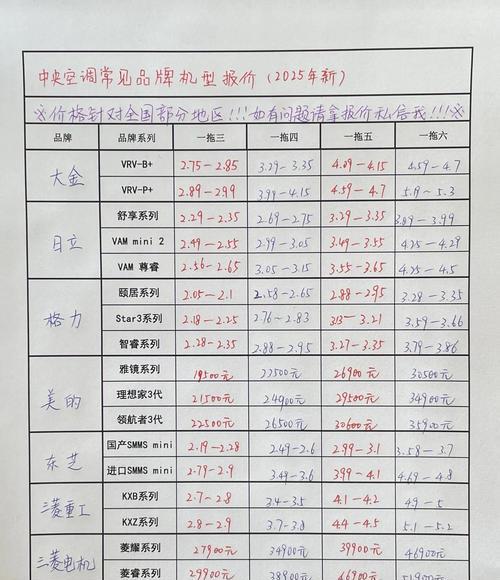 中央空调常见品牌机型报价(2025年新)
※价格针对全国部分地区!!!如有问题请拿报价私信我!!!※
品牌 品牌系列 一拖三 一拖四 一拖五 一拖六
大金 VRV-B+ 2.75-2.85 3.29-3.35 4.09-4.15 4.59-4.7
VRV-P+ 2.89-2.99 3.99-4.15 4.59-4.7 5.19-5.3
日立 舒享系列 2.29-2.35 2.69-2.75 3.29-3.35 3.89-3.99
VAM mini 2 2.49-2.55 2.99-3.05 3.49-3.55 4.25-4.29
VAM 尊睿 2.56-2.65 3.05-3.15 3.55-3.65 4.25-4.5
格力 颐居系列 2.05-2.1 2.58-2.65 2.88-2.95 3.28-3.35
Star3系列 2.18-2.25 2.76-2.83 3.13-3.21 3.59-3.66
智睿系列 2.28-2.35 2.88-2.95 3.27-3.35 3.79-3.86
美的 雅镜系列 19500元 22500元 26900元 30500元
理想家3代 21500元 24900元 29500元 34900元
领航者3代 22500元 26500元 30600元 35900元
东芝 国产SMMS mini 2.19-2.28 2.49-2.6 2.99-3.1 3.58-3.7
进口SMMS mini 2.79-2.9 3.49-3.6 3.99-4.1 4.69-4.8
三菱重工 KXB系列 2.7-2.8 3.4-3.5 4.1-4.2 4.9-5
KXZ系列 2.8-2.9 3.7-3.8 4.4-4.5 5.1-5.2
三菱电机 菱耀系列 27900元 34900元 39900元 46900元
菱睿系列 29900元 38900元 46900元